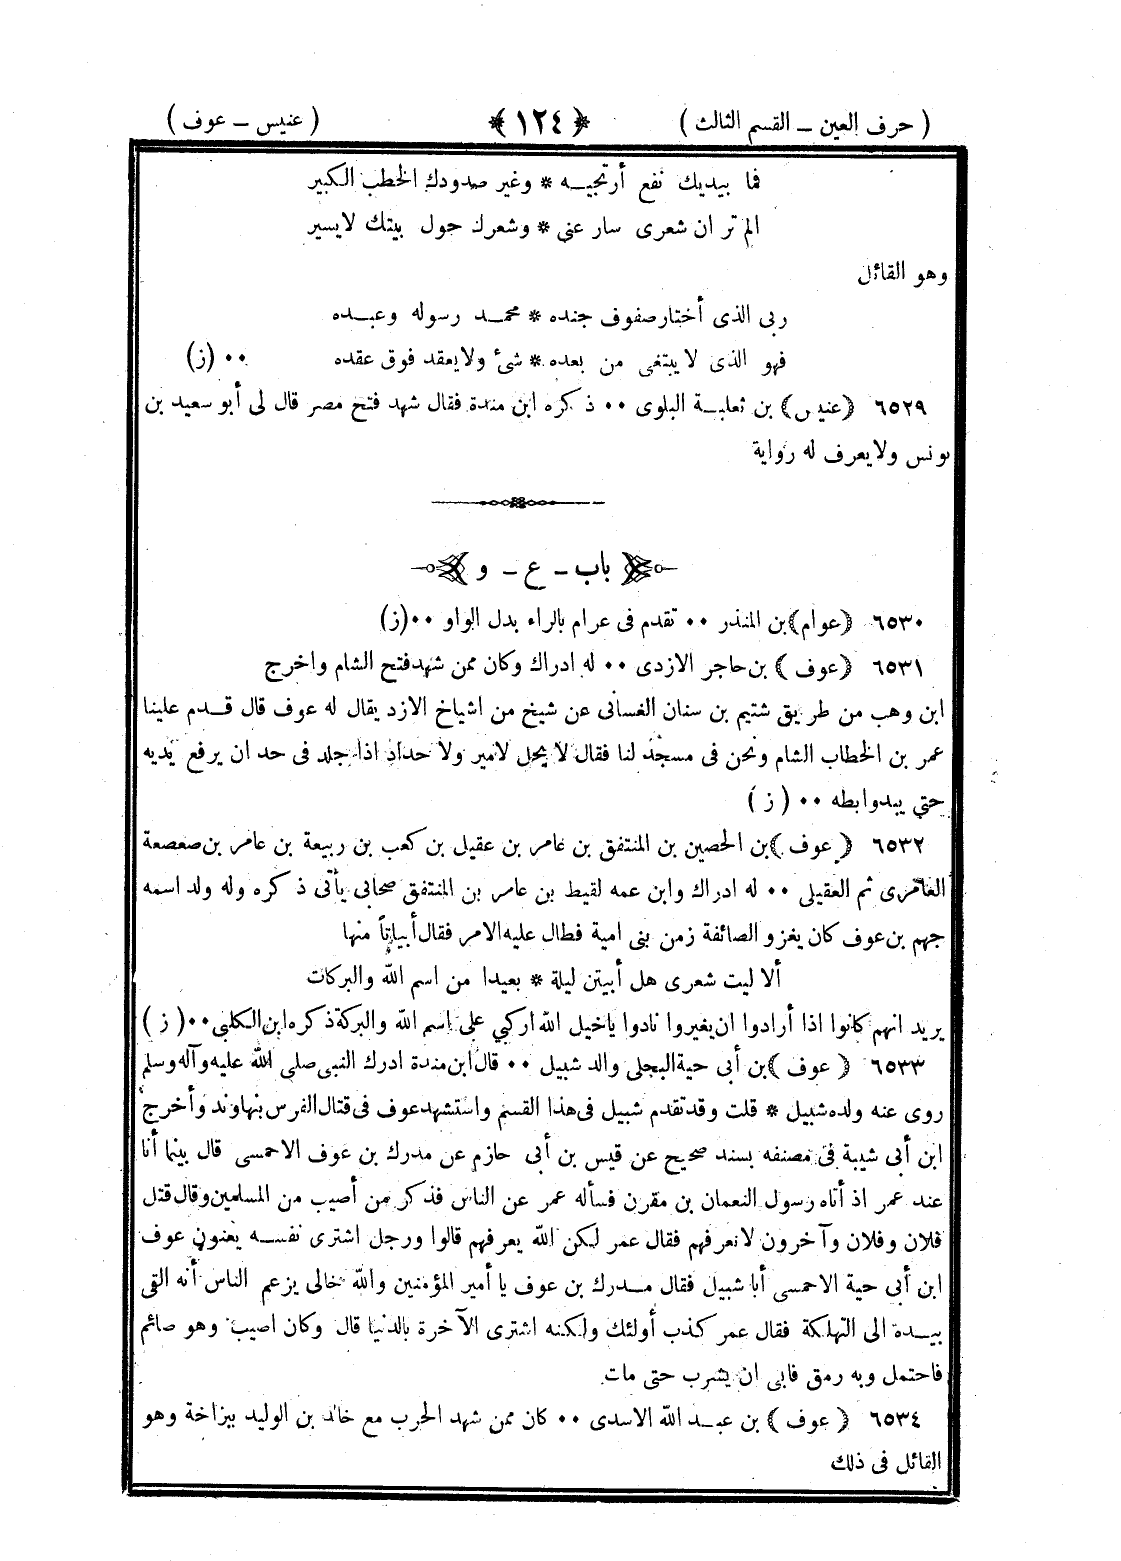 ( حرف العين ــ القسم الثالث ) ﴿ ١٢٤ ﴾ ( عنيس ــ عوف )
فما بيديك نفع أرتجيــه * وغير صدودك الخطب الكبير
الم تر ان شعرى سار عنى * وشعرك حول بيتك لايسير
وهو القائل
ربى الذى أختار صفوف جنده * محمــد رسوله وعبــده
فهو الذى لا يبتغى من بعده * شئ ولا يعقد فوق عقده ٠٠ (ز)
٦٥٢٩ ﴿ عنيس ﴾ بن ثعلبــة البلوى ٠٠ ذكره ابن مندة فقال شهد فتح مصر قال لى أبو سعيد بن
يونس ولا يعرف له رواية
باب ــ ع ــ و
٦٥٣٠ ﴿ عوام ﴾ بن المنذر ٠٠ تقدم فى عرام بالراء بدل الواو ٠٠ (ز)
٦٥٣١ ﴿ عوف ﴾ بن حاجر الازدى ٠٠ له ادراك وكان ممن شهد فتح الشام واخرج
ابن وهب من طريق شتيم بن سنان الغسانى عن شيخ من اشياخ الازد يقال له عوف قال قــدم علينا
عمر بن الخطاب الشام ونحن فى مسجد لنا فقال لا يحل لامير ولا حداد اذا جلد فى حد ان يرفع يديه
حتي يبدوا بطه ٠٠ ( ز )
٦٥٣٢ ﴿ عوف ﴾ بن الحصين بن المنتفق بن عامر بن عقيل بن كعب بن ربيعة بن عامر بن صعصعة
العامرى ثم العقيلى ٠٠ له ادراك وابن عمه لقيط بن عامر بن المنتفق صحابى يأتى ذكره وله ولد اسمه
جهم بن عوف كان يغزو الصائفة زمن بنى امية فطال عليه الامر فقال أبياتاً منها
ألا ليت شعرى هل أبيتن ليلة * بعيدا من اسم الله والبركات
يريد انهم كانوا اذا أرادوا ان يغيروا نادوا ياخيل الله اركبي على اسم الله والبركة ذكره ابن الكلبى ٠٠ ( ز )
٦٥٣٣ ﴿ عوف ﴾ بن أبى حية البجلى والد شبيل ٠٠ قال ابن مندة ادرك النبى صلى الله عليه وآله وسلم
روى عنه ولده شبيل * قلت وقد تقدم شبيل فى هذا القسم واستشهد عوف فى قتال الفرس بنهاوند وأخرج
ابن أبى شيبة فى مصنفه بسند صحيح عن قيس بن أبى حازم عن مدرك بن عوف الاحمسى قال بينما أنا
عند عمر اذ أتاه رسول النعمان بن مقرن فسأله عمر عن الناس فذكر من أصيب من المسلمين وقال قتل
فلان وفلان وآخرون لا نعرفهم فقال عمر لكن الله يعرفهم قالوا ورجل اشترى نفســه يعنون عوف
ابن أبى حية الاحمسى أبا شبيل فقال مــدرك بن عوف يا أمير المؤمنين والله خالى يزعم الناس أنه القى
بيــدة الى التهلكة فقال عمر كذب أولئك ولكنه اشترى الآخرة بالدنيا قال وكان اصيب وهو صائم
فاحتمل وبه رمق فابى ان يشرب حتى مات
٦٥٣٤ ﴿ عوف ﴾ بن عبــد الله الاسدى ٠٠ كان ممن شهد الحرب مع خالد بن الوليد ببزاخة وهو
القائل فى ذلك